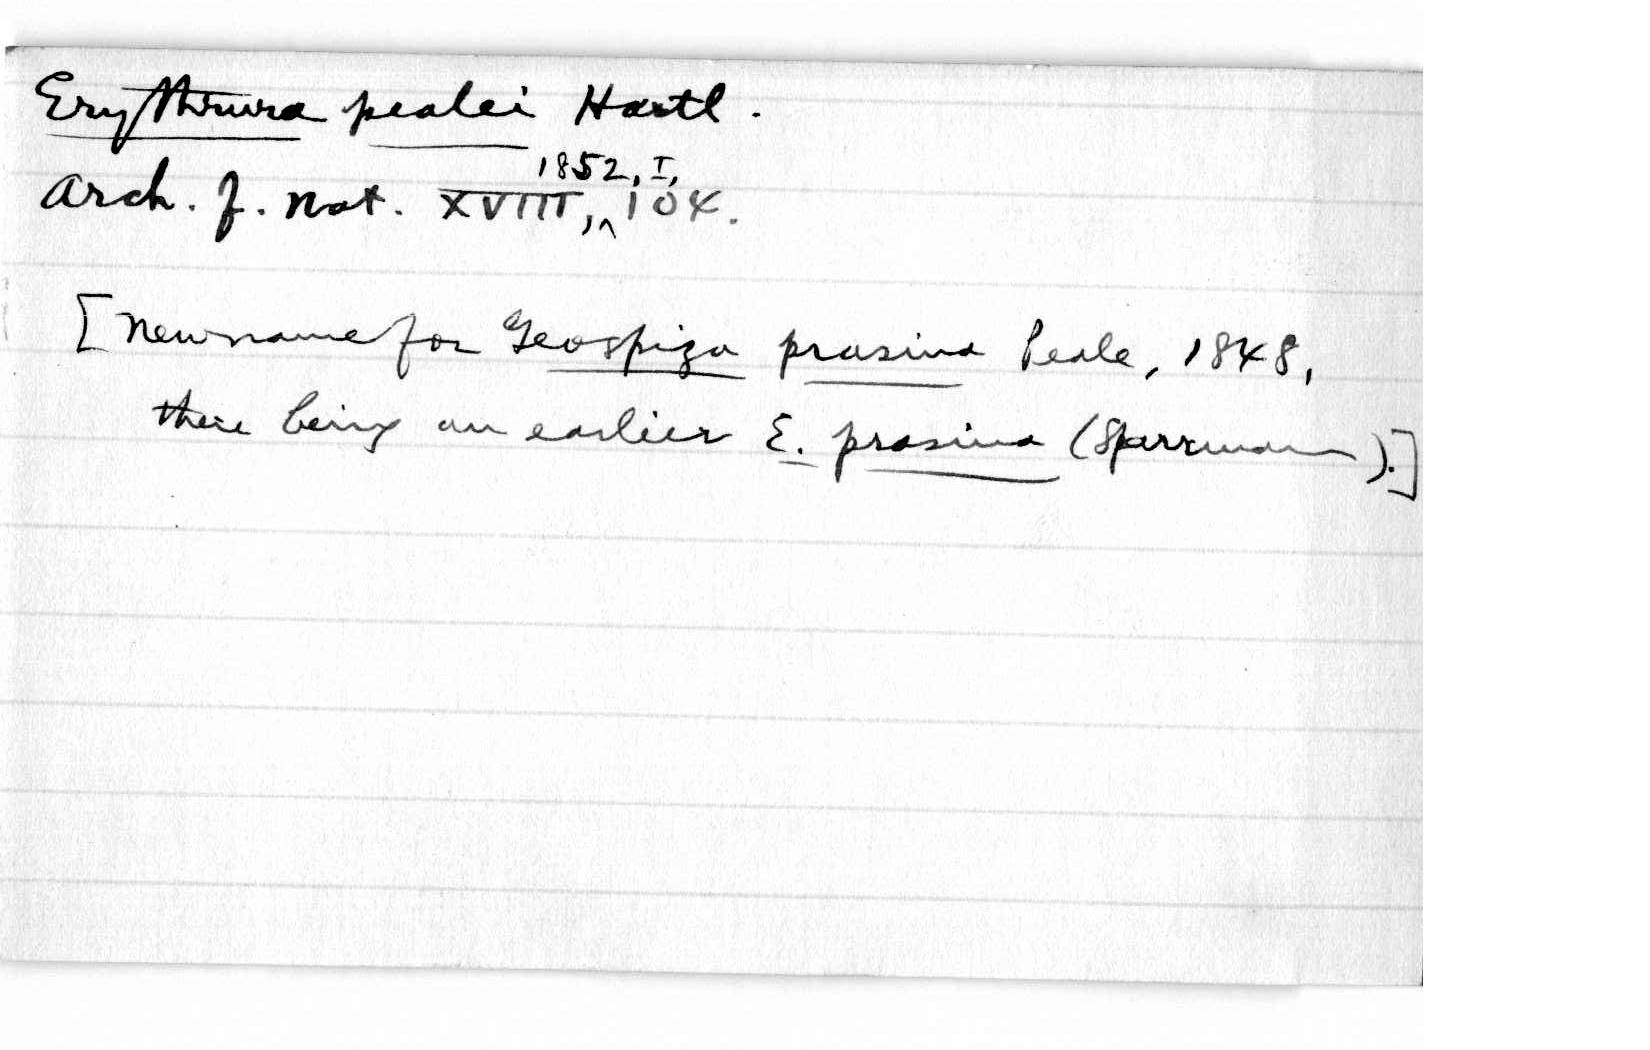 Erythrura pealei Hartl.
Arch. f. Nat. XVIII, 1852, I, 104.
[New name for Geospiza prasina Peale, 1848,
there being an earlier E. prasina (Sparrman).]